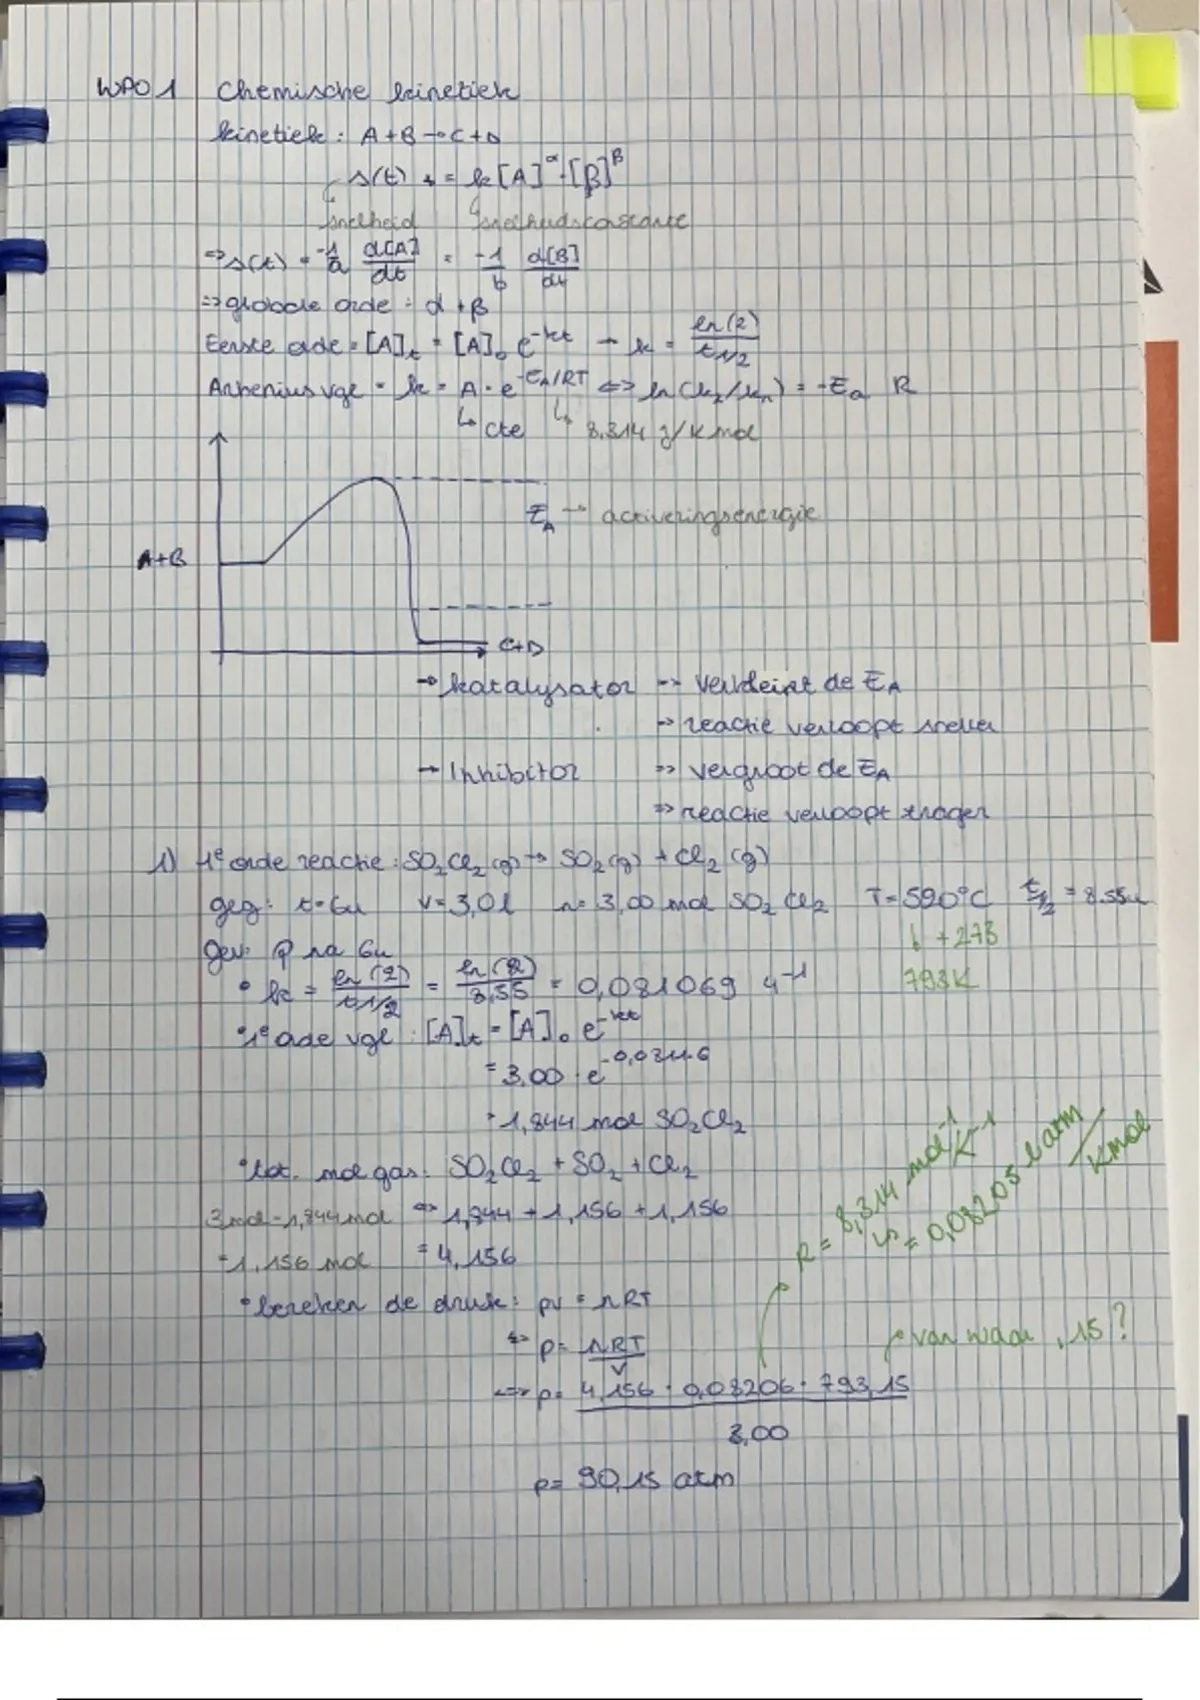 WPO 1 Chemische kinetiek
kinetiek: A+B → C+D
s(t) = k[A]^α·[β]^β
snelheid snelheidsconstante
⇒ s(t) = -1/a d[A]/dt = -1/b d[B]/dt
⇒ globale orde = α + β
Eerste orde = [A]t = [A]₀ e^-kt → k = ln(2)/t1/2
Arhenius vgl = k = A · e^-EA/RT ⇔ ln(k₂/k₁) = -Ea R
↳ cte ↳ 8,314 J/K mol
EA → activeringsenergie
A+B
C+D
→ katalysator → verkleint de EA
→ reactie verloopt sneller
→ Inhibitor ⇒ vergroot de EA
⇒ reactie verloopt trager
1) 1e orde reactie: SO₂Cl₂(g) → SO₂(g) + Cl₂(g)
geg: t=6u V=3,0l n= 3,00 mol SO₂Cl₂ T=520°C t1/2 = 8.55u
↓ +273
793K
gev: P na 6u
• k = ln(2)/t1/2 = ln(2)/8,55 = 0,081069 u^-1
• 1e orde vgl: [A]t = [A]₀ e^-kt
= 3.00 · e^-0,0811·6
= 1,844 mol SO₂Cl₂
• tot. mol gas: SO₂Cl₂ + SO₂ + Cl₂
3mol-1,844mol ⇔ 1,844 + 1,156 + 1,156
= 1,156 mol = 4,156
R = 8,314 mol^-1 K^-1
↳ = 0,08205 l atm/K mol
• bereken de druk: pV = nRT
⇔ p = nRT/V
van waar ,15?
⇔ p = 4,156 · 0,08206 · 793,15
3,00
p = 90,15 atm